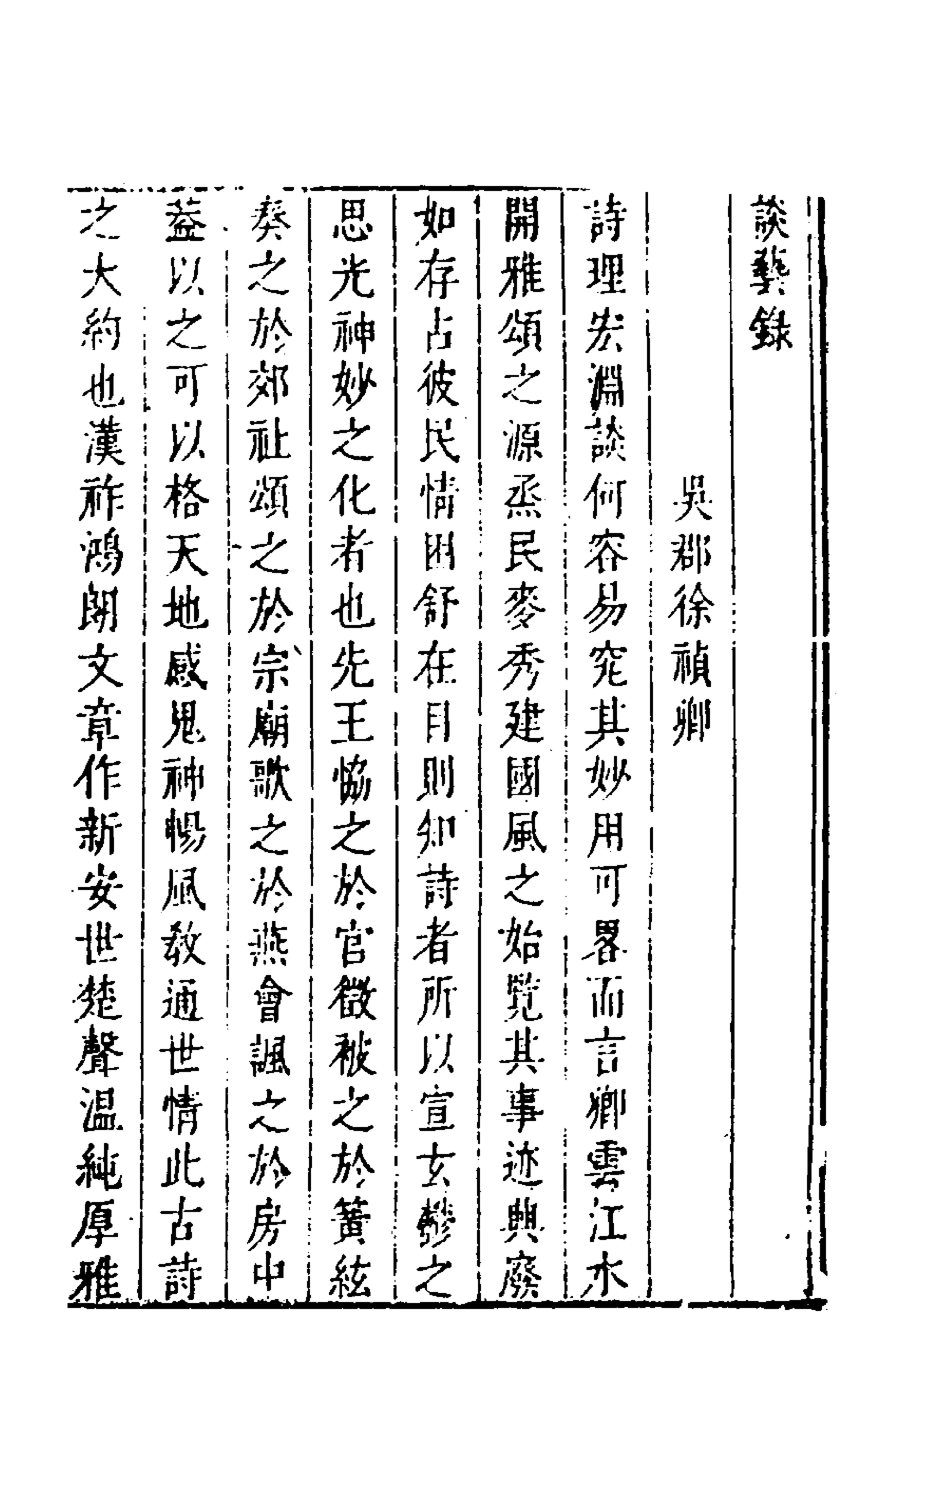 談藝錄
吳郡徐禎卿
詩理宏淵談何容易究其妙用可畧而言卿雲江水
開雅頌之源烝民麥秀建國風之始覽其事迹興廢
如存占彼民情困舒在目則知詩者所以宣玄鬱之
思光神妙之化者也先王恊之於宫徵被之於簧絃
奏之於郊社頌之於宗廟歌之於燕會諷之於房中
葢以之可以格天地感鬼神暢風教通世情此古詩
之大約也漢祚鴻朗文章作新安世楚聲温純厚雅